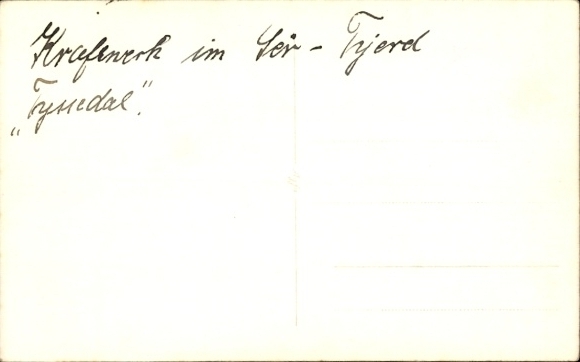 Kraftwerk im Sör - Fjord
„Tyssedal".